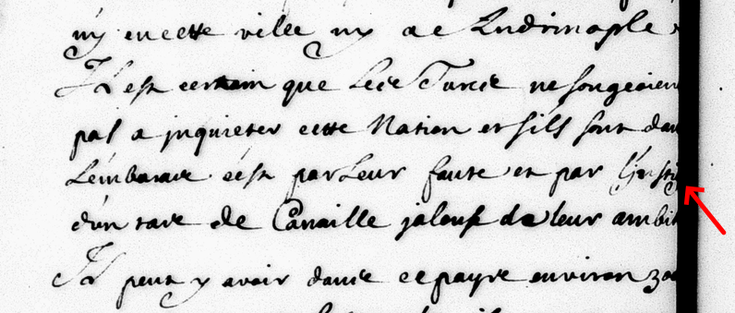 ny en cette ville ny a Andrinople
Il est certain que les Turcs ne songeoien
pas a jnquieter cette Nation et sils sont dan
Lembaras cest par Leur faute et par
dun tas de Canaille jalouse de leur ambit
Il peut y avoir dans ce pays environ 300